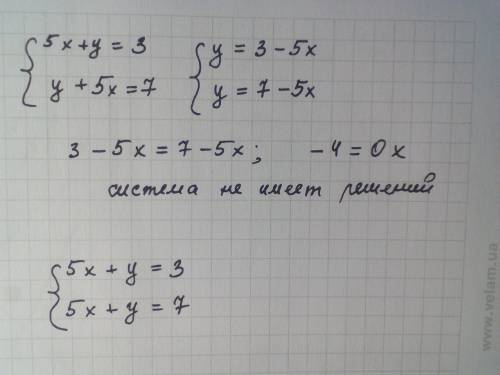 5x+y = 3    y = 3 - 5x
y + 5x = 7    y = 7 - 5x
3 - 5x = 7 - 5x;    - 4 = 0x
система не имеет решений
5x + y = 3
5x + y = 7
www.velam.ua